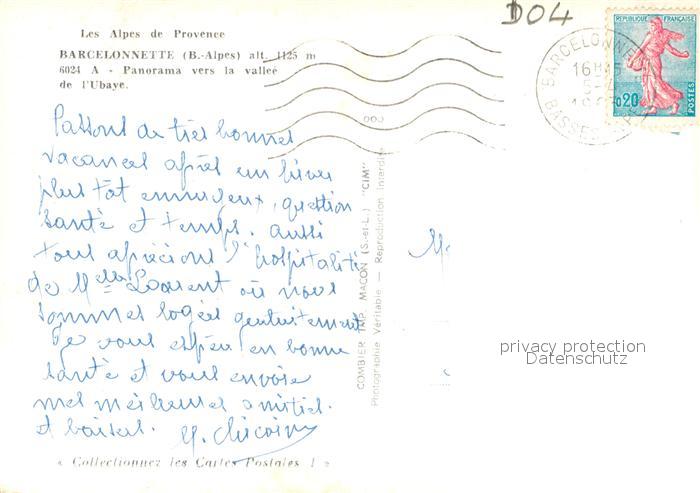 Les Alpes de Provence
BARCELONNETTE (B.-Alpes) alt. 1125 m
6024 A - Panorama vers la vallée
de l'Ubaye.
D04
BARCELONNE
16H15
BASSES
REPUBLIQUE FRANÇAISE
0,20
POSTES
Passons de très bonnes
vacances après un hiver
plus tôt ennuyeux, question
santé et temps. Aussi
tous apprécions l'hospitalité
de Melle Laurent où nous
sommes logés gentiment
Je vous espère en bonne
santé et vous envoie
mes meilleures amitiés.
et baisers.
« Collectionnez les Cartes Postales ! »
COMBIER IMP. MACON (S.-et-L.) "CIM"
Photographie Véritable — Reproduction Interdite
privacy protection
Datenschutz